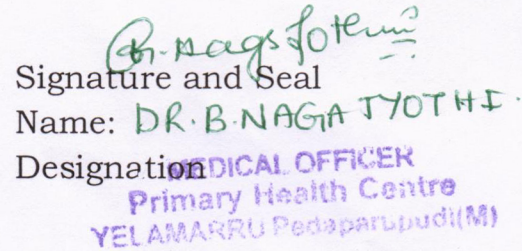 B. Naga Jothi
Signature and Seal
Name: DR. B. NAGA JYOTHI.
Designation MEDICAL OFFICER
Primary Health Centre
YELAMARRU Pedaparupudi(M)